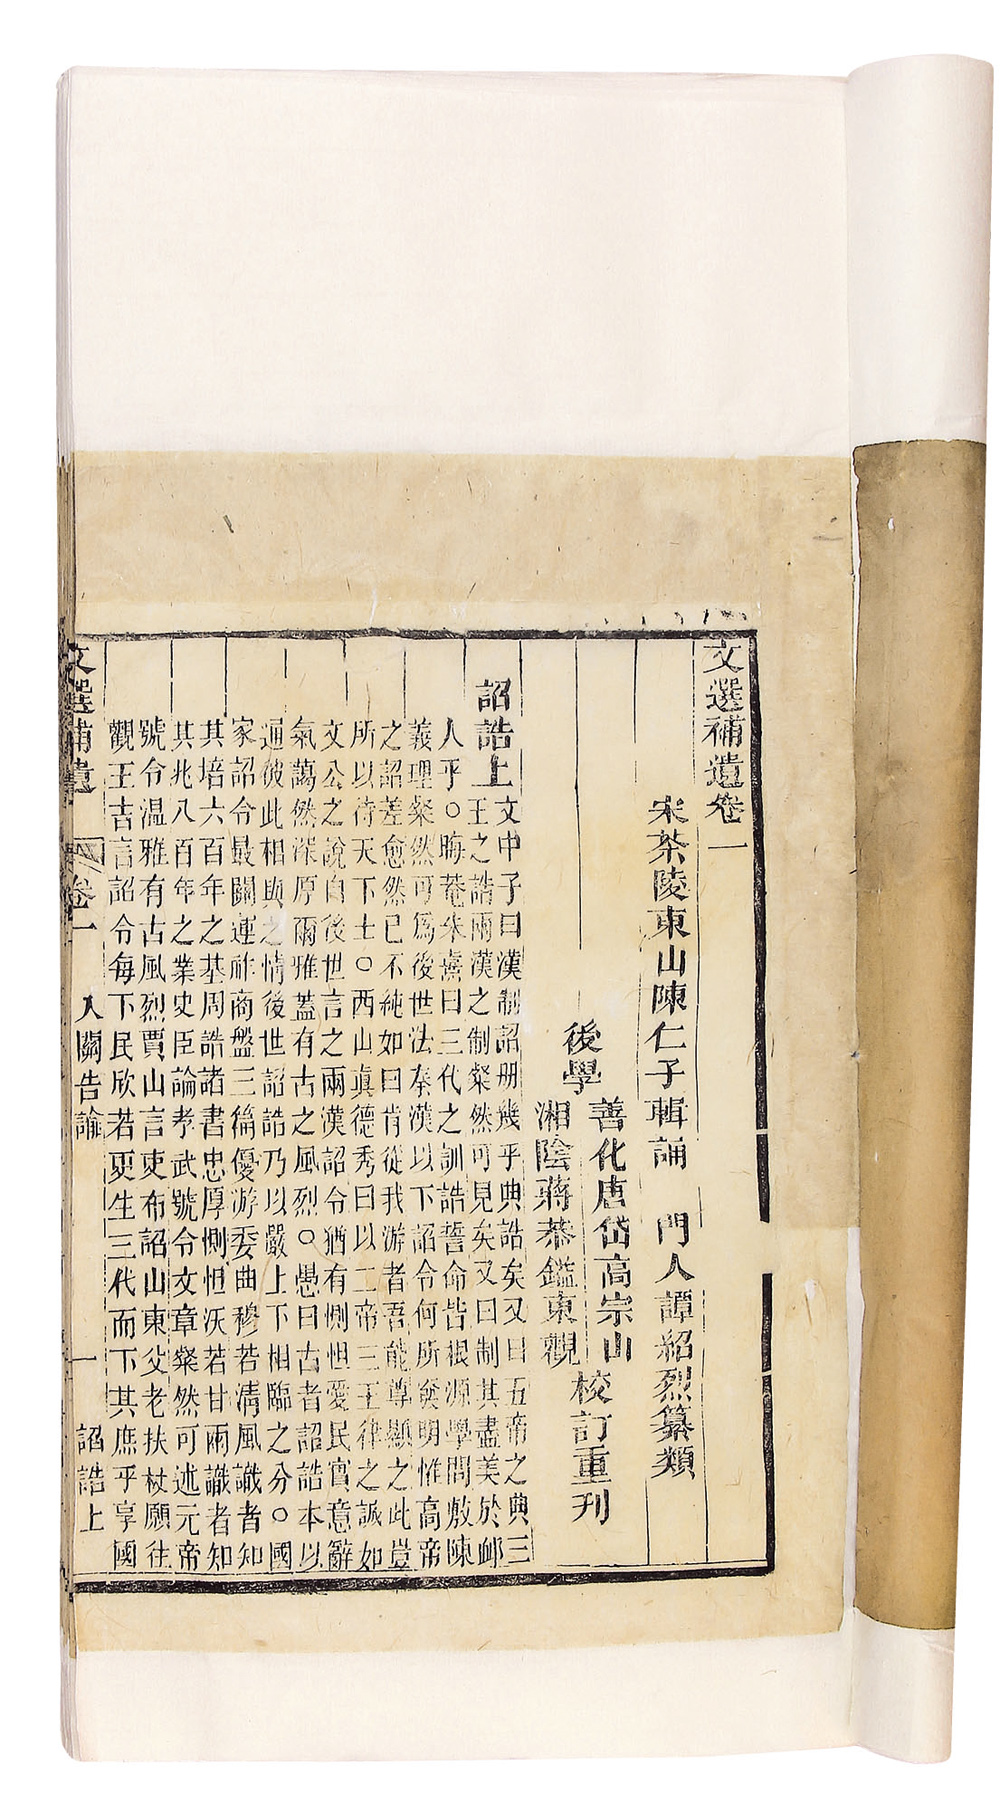 文選補遺卷一
宋茶陵東山陳仁子輯誦　門人譚紹烈纂類
後學
善化唐岱高宗山
湘陰蔣恭鎰東觀
校訂重刊
詔誥上
文中子曰漢制詔册幾乎典誥矣又曰五帝之典三
王之誥兩漢之制粲然可見矣又曰制其盡美於卹
人乎○晦菴朱熹曰三代之訓誥誓命皆根源學問敷陳
義理粲然可爲後世法秦漢以下詔令何所發明惟高帝
之詔差愈然已不純如曰肯從我游者吾能尊顯之此豈
所以待天下士○西山眞德秀曰以二帝三王律之誠如
文公之說自後世言之兩漢詔令猶有惻怛愛民實意辭
氣藹然深厚爾雅蓋有古之風烈○愚曰古者詔誥本以
通彼此相與之情後世詔誥乃以嚴上下相臨之分○國
家詔令最關運祚商盤三篇優游委曲穆若淸風識者知
其培六百年之基周誥諸書忠厚惻怛沃若甘雨識者知
其兆八百年之業史臣論孝武號令文章粲然可述元帝
號令温雅有古風烈賈山言吏布詔山東父老扶杖願往
觀王吉言詔令每下民欣若更生三代而下其庶乎享國
文選補遺
卷一
入關告諭
一
詔誥上